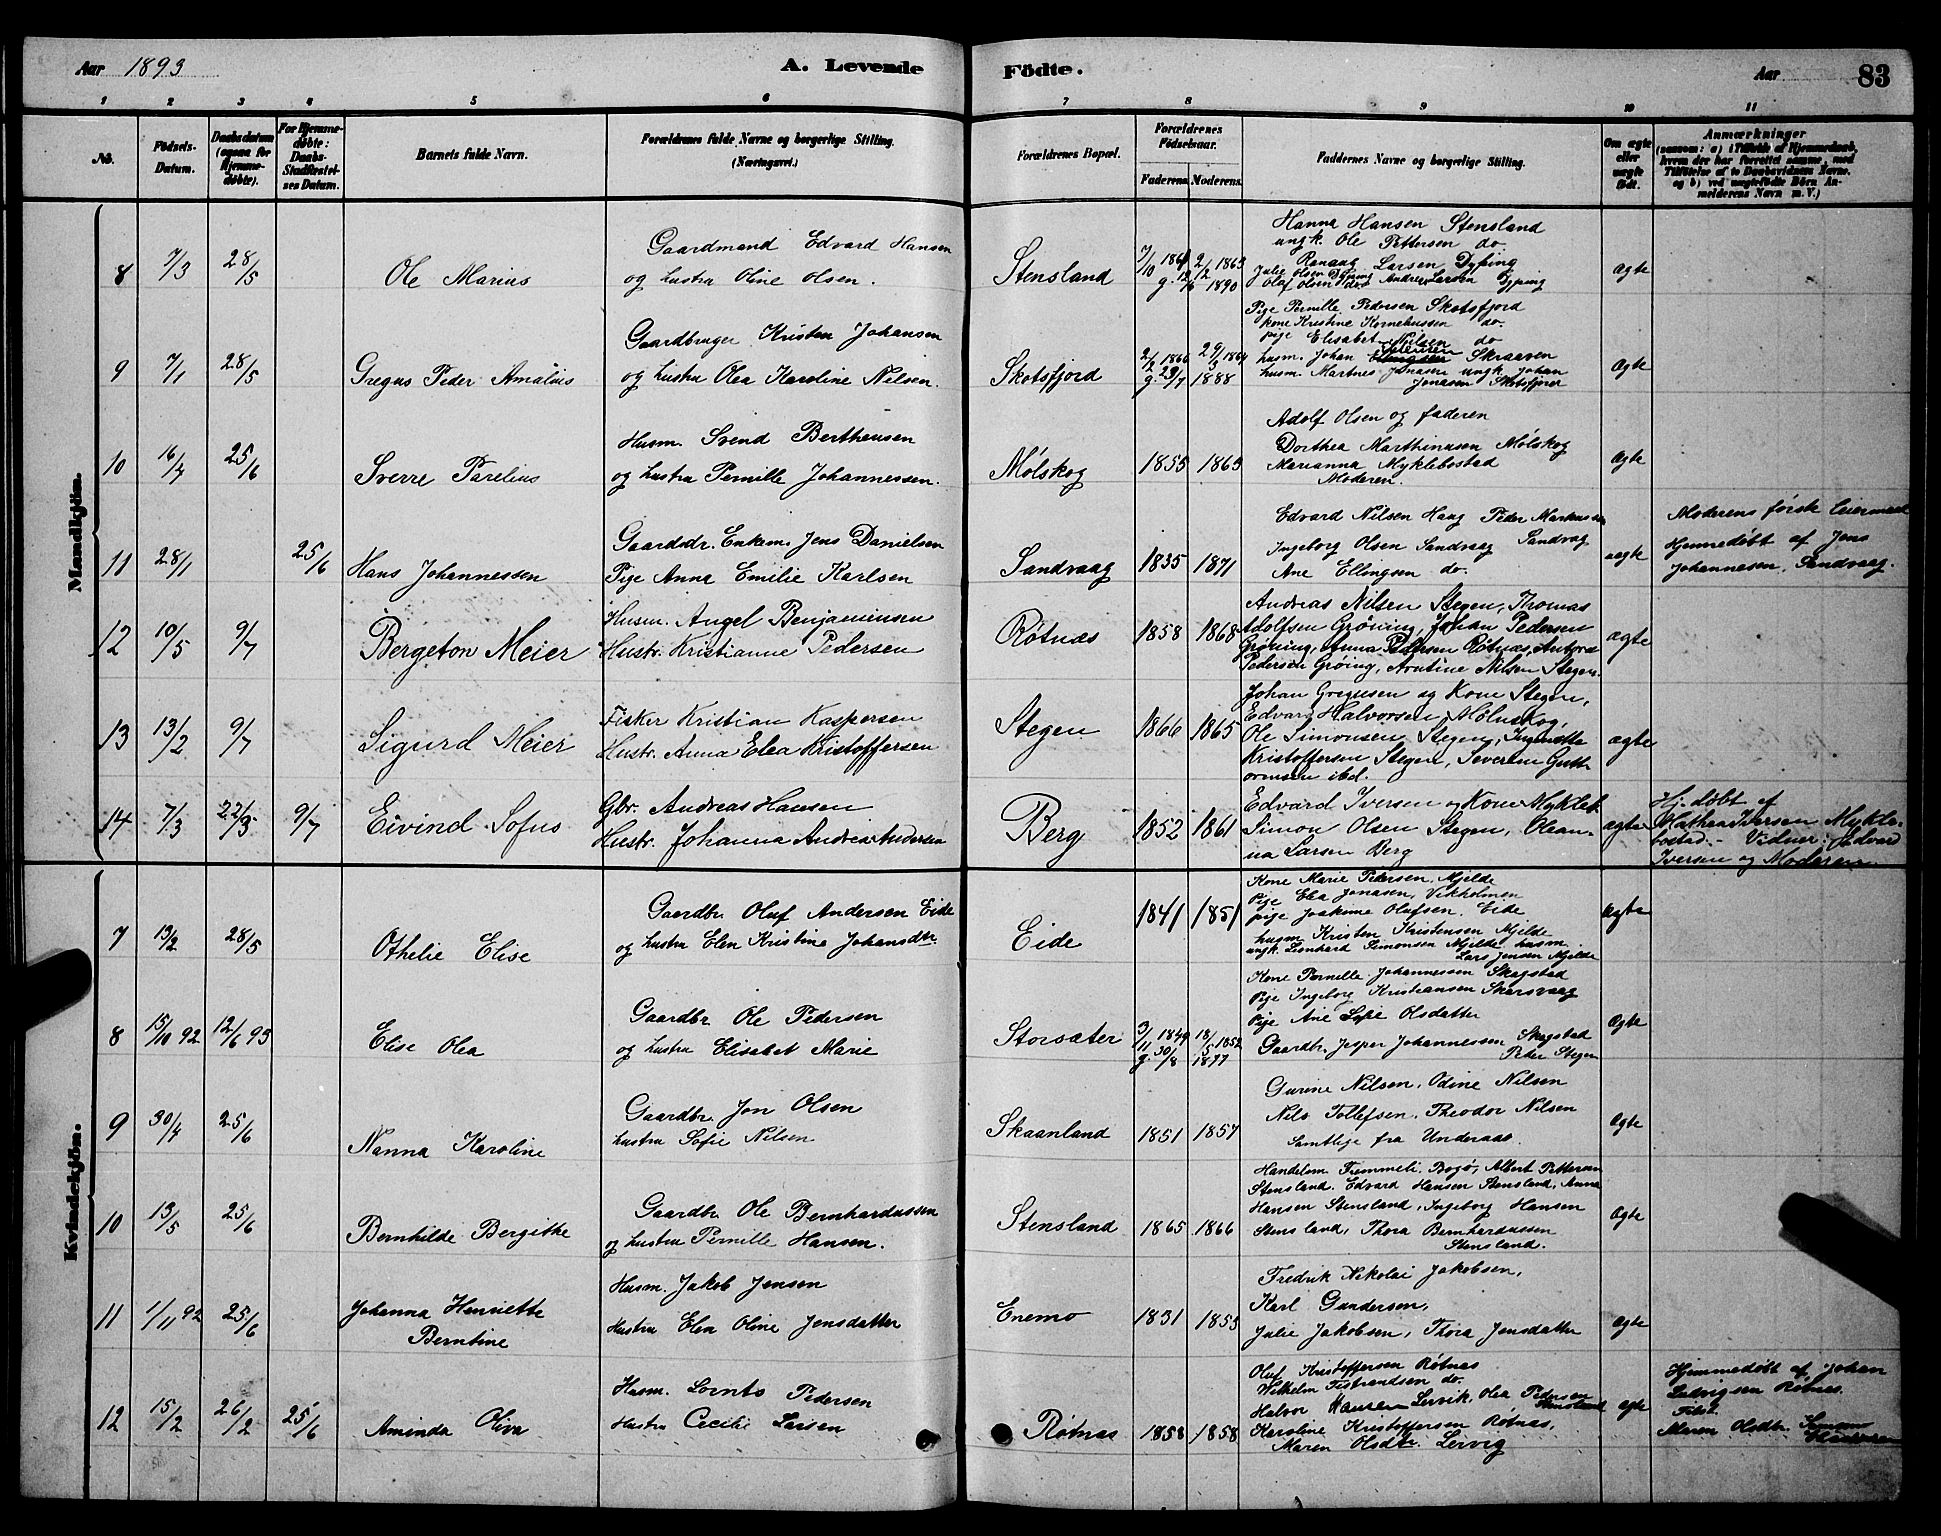 Aar 1893
A. Levende Födte.
Aar
83
1 2 3 4 5 6 7 8 9 10 11
No.
Födsels-Datum.
Daabsdatum (ogsaa for Hjemmedöbte).
For Hjemmedöbte: Daabs-Stadfæstelses Datum.
Barnets fulde Navn.
Forældrenes fulde Navne og borgerlige Stilling. (Næringsvei.)
Forældrenes Bopæl.
Forældrenes Födselsaar.
Faderens. Moderens.
Faddernes Navne og borgerlige Stilling.
Om ægte eller uægte födt.
Anmærkninger
(saasom: a) i Tilfælde af Hjemmedaab, hvem der har forrettet samme, med Tilföielse af to Daabsvidners Navne. og b) ved uægtefödte Börn Anmelderens Navn m. V.)
Mandkjön.
8 7/3 28/5 Ole Marius
Gaardmand Edvard Hansen
og hustru Oline Olsen.
Stensland
7/10 1861 2/2 1863
g. 12/6 1890
Hanna Hansen Stensland
ungk. Ole Pettersen do
Ranaug Larsen Dyping
Julie Olsen Dyping Andreas Larsen Dyping
Olaf Olsen do
ægte
9 7/1 28/5 Gregus Peder Amalius
Gaardbruger Kristen Johansen
og hustru Olea Karoline Nilsen.
Skotsfjord
2/2 1866 29/3 1864
g. 29/7 1888
Pige Pernille Pedersen Skotsfjord
kone Kristine Korneliussen do.
pige Elisabet Nilsen do
husm. Johan Skraaven
husm. Martines Jonasen ungk. Johan
Jonasen Skotsfjord
ægte
10 16/4 25/6 Sverre Parelius
Husm. Svend Bertheusen
og hustru Pernille Johannessen.
Mølskog
1855 1863
Adolf Olsen og faderen
Dorthea Marthinusen Mølskog
Marianna Myklebostad
Moderen.
ægte
11 28/1 25/6 Hans Johannessen
Gaardbr. Enkem. Jens Danielsen
Pige Anna Emilie Karlsen
Sandvaag
1835 1871
Edvard Nilsen Haug Peder Markussen
Ingeborg Olsen Sandvaag Sandvag
Ane Ellingsen do.
uegte
Moderens første Leiermaal
Hjemmedøbt af Jens
Johannesen, Sandvaag.
12 10/5 9/7 Bergeton Meier
Husm. Angel Benjaminsen
Hustr. Kristianne Pedersen
Røtnæs
1858 1868
Andreas Nilsen Stegen, Thomas
Adolfsen Grøning, Johan Pedersen
Grøning, Anna Pedersen Røtnæs, Antora
Pedersen Grøing, Arntine Nilsen Stegen.
ægte
13 13/2 9/7 Sigurd Meier
Fisker Kristian Kaspersen
Hustr. Anna Elea Kristoffersen
Stegen
1866 1865
Johan Gregusen og Kone Stegen,
Edvard Halvorsen Mølnskog,
Ole Simonsen Stegen, Ingenette
Kristoffersen Stegen, Severine Gutt-
ormsen ibd.
ægte
14 7/3 22/3 9/7 Eivind Sofus
Gbr. Andreas Hansen
Hustr. Johanna Andrea Andersen
Berg
1852 1861
Edvard Iversen og Kone Mykleb.
Simon Olsen Stegen, Olean-
na Larsen Berg
ægte
Hj.døbt af
Mathea Iversen Mykle-
bostad. - Vidner: Edvard
Iversen og Moderen
Kvindekjön.
7 13/2 28/5 Othelie Elise
Gaardbr Oluf Andersen Eide
og hustru Elen Kristina Johansdtr
Eide
1841 1851
Kone Marie Pedersen, Mjelde
Pige Elea Jonasen, Vikholmen
pige Joakime Olufsen. Eide
husm Kristen Kristensen Mjelde
ungk. Lenhard Simonsen Mjelde husm
Lars Jensen Mjelde
ægte
8 15/10 92 12/6 93 Elise Olea
Gaardbr Ole Pedersen
og hustru Elisabet Marie
Storsæter
3/11 1849 18/5 1852
g. 30/8 1877
Kone Pernille Johannessen Skagstad
Pige Ingeborg Kristiansen Skarsvaag
Pige Ane Sofie Olsdatter
Gaardbr. Jesper Johannessen Skagstad
Peter Stegen
ægte
9 30/4 25/6 Nanna Karoline
Gaardbr. Jon Olsen
hustru Sofie Nilsen
Skaanland
1851 1857
Gurine Nilsen, Odine Nilsen
Nils Tollefsen. Theodor Nilsen
Samtlige fra Underaas.
ægte
10 13/5 25/6 Bernhilde Bergitte
Gaardbr Ole Bernhardussen
og hustru Pernille Hansen.
Stensland
1865 1866
Handelsm Fremmeli. Bogø, Albert Pettersen
Stensland. Edvard Hansen Stensland, Anna
Hansen Stensland, Ingeborg Hansen
Stensland, Thora Bernhardussen
Stensland.
ægte
11 1/11 92 25/6 Johanna Henriette
Berntine
Husm. Jakob Jensen
Hustru Elen Oline Jensdatter
Enemo
1831 1855
Fredrik Nikolai Jakobsen,
Karl Gundersen,
Julie Jakobsen, Thora Jensdatter
ægte
12 15/2 26/2 25/6 Aminda Oliva
Husm. Lornts Pedersen
Hustru Cecilie Larsen
Røtnæs
1858 1858
Oluf Kristoffersen Røtnæs
Wilhelm Tistrandsen do.
Halvor Hansen Lervik, Olea Pedersen
Stensland
Karoline Kristoffersen Røtnæs,
Maren Olsdtr Lervig
ægte
Hjemmedøbt af Johan
Ludvigsen Røtnæs.
Maren Olsdtr.